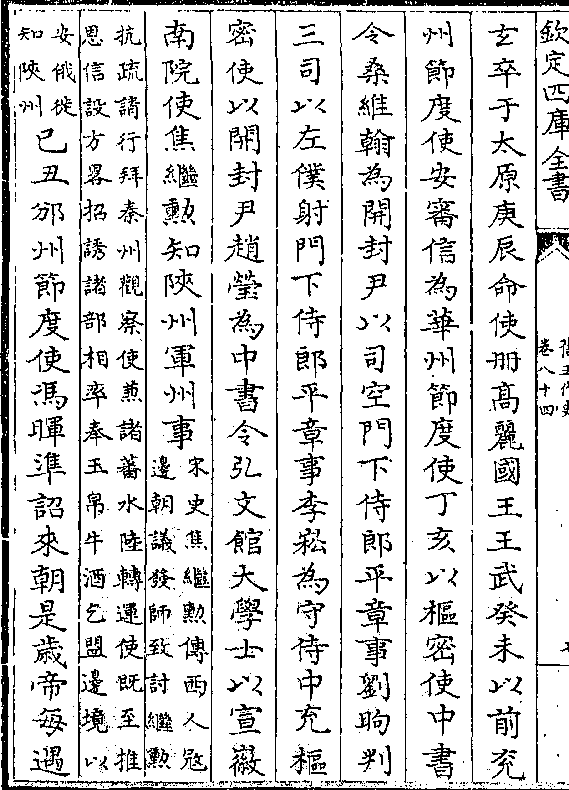 欽定四庫全書
舊五代史
卷八十四
玄卒于太原庚辰命使册髙麗國王王武癸未以前兖
州節度使安審信為華州節度使丁亥以樞密使中書
令桑維翰為開封尹以司空門下侍郎平章事劉昫判
三司以左僕射門下侍郎平章事李崧為守侍中充樞
密使以開封尹趙瑩為中書令弘文館大學士以宣徽
南院使焦繼勲知陜州軍州事
宋史焦繼勲傳西人宼
邊朝議發師致討繼勲
抗疏請行拜秦州觀察使兼諸蕃水陸轉運使既至推
恩信設方畧招誘諸部相率奉玉帛牛酒乞盟邊境以
安俄徙
知陜州
己丑邠州節度使馮暉準詔來朝是歲帝每遇